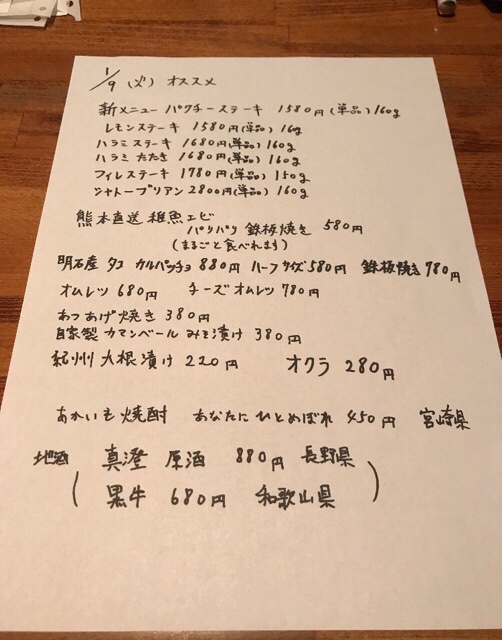 1/9 (火) オススメ
新メニュー パクチーステーキ 1580円(単品)160g
レモンステーキ 1580円(単品) 160g
ハラミステーキ 1680円(単品)160g
ハラミ たたき 1680円(単品)160g
フィレステーキ 1780円(単品)150g
シャトーブリアン 2800円(単品)160g
熊本直送 稚魚エビ
パリパリ 鉄板焼き 580円
(まるごと食べれます)
明石産 タコ カルパッチョ 880円 ハーフサイズ580円 鉄板焼き780円
オムレツ 680円 チーズオムレツ 780円
あつあげ焼き 380円
自家製 カマンベール みそ漬け 380円
紀州 大根漬け 220円 オクラ 280円
あかいも焼酎 あなたにひとめぼれ 450円 宮崎県
地酒 (真澄 原酒 880円 長野県
黒牛 680円 和歌山県)